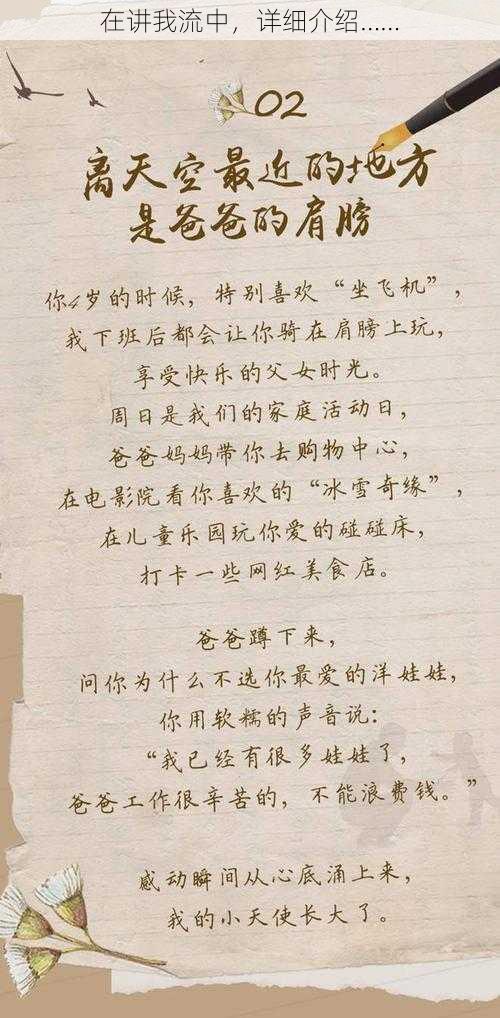 在讲我流中，详细介绍……
02
离天空最近的地方
是爸爸的肩膀
你4岁的时候，特别喜欢“坐飞机”，
我下班后都会让你骑在肩膀上玩，
享受快乐的父女时光。
周日是我们的家庭活动日，
爸爸妈妈带你去购物中心，
在电影院看你喜欢的“冰雪奇缘”，
在儿童乐园玩你爱的碰碰床，
打卡一些网红美食店。
爸爸蹲下来，
问你为什么不选你最爱的洋娃娃，
你用软糯的声音说：
“我已经有很多娃娃了，
爸爸工作很辛苦的，不能浪费钱。”
感动瞬间从心底涌上来，
我的小天使长大了。